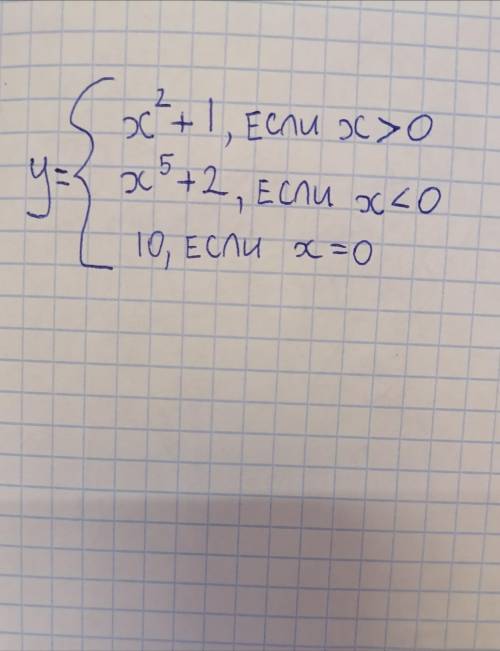 x² + 1, если x > 0
y = { x⁵ + 2, если x < 0
10, если x = 0